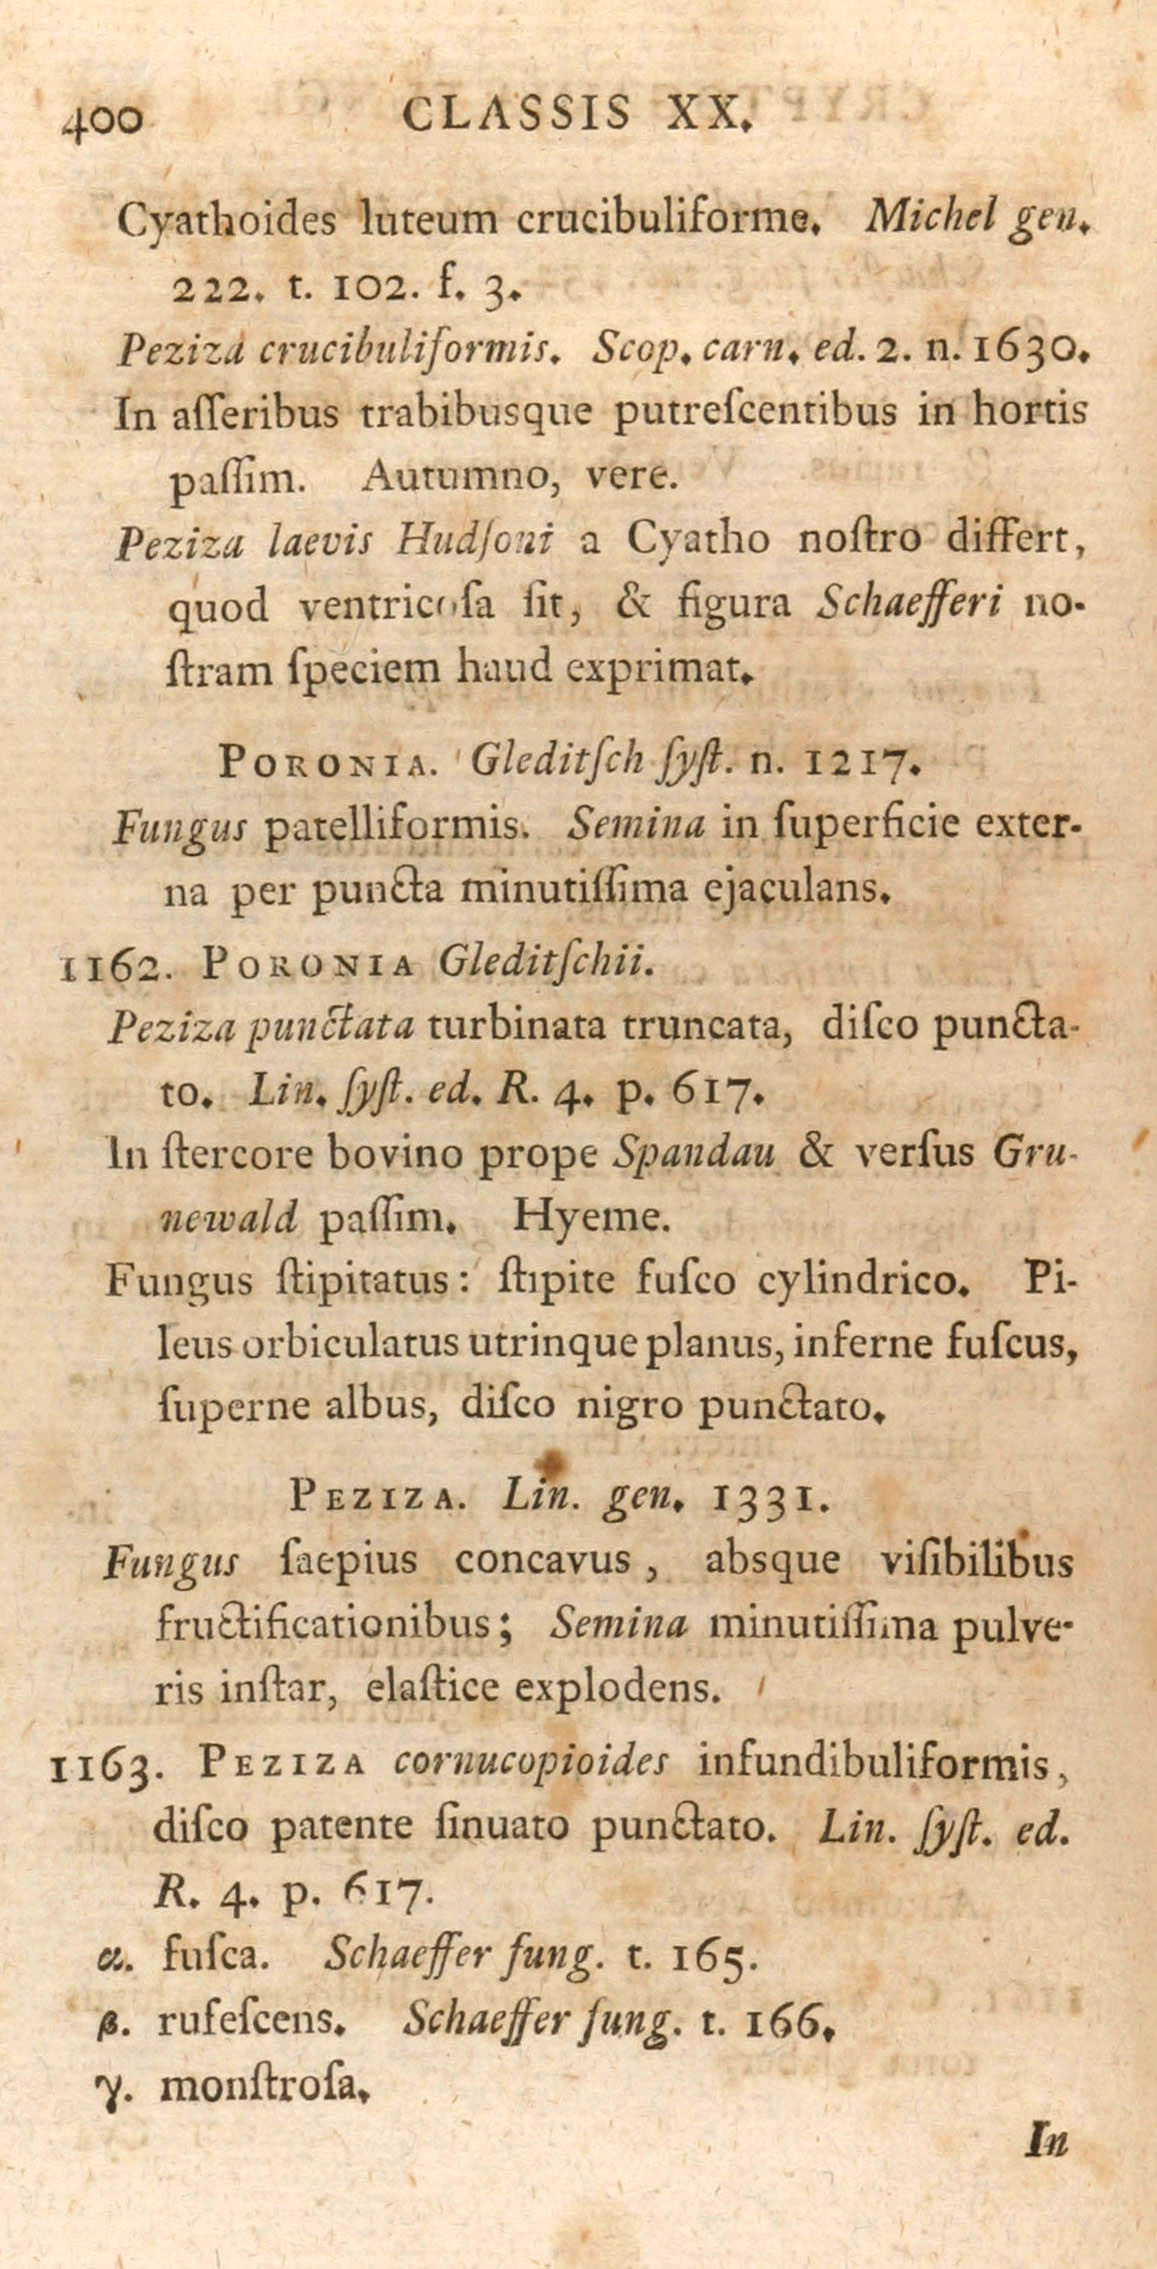 400 CLASSIS XX.
Cyathoides luteum crucibuliforme. Michel gen.
222. t. 102. f. 3.
Peziza crucibuliformis. Scop. carn. ed. 2. n. 1630.
In aſſeribus trabibusque putreſcentibus in hortis
paſſim. Autumno, vere.
Peziza laevis Hudſoni a Cyatho noſtro differt,
quod ventricoſa ſit, & figura Schaefferi no-
ſtram ſpeciem haud exprimat.
PORONIA. Gleditſch ſyſt. n. 1217.
Fungus patelliformis. Semina in ſuperficie exter-
na per puncta minutiſſima ejaculans.
1162. PORONIA Gleditſchii.
Peziza punctata turbinata truncata, diſco puncta-
to. Lin. ſyſt. ed. R. 4. p. 617.
In ſtercore bovino prope Spandau & verſus Gru-
newald paſſim. Hyeme.
Fungus ſtipitatus: ſtipite fuſco cylindrico. Pi-
leus orbiculatus utrinque planus, inferne fuſcus,
ſuperne albus, diſco nigro punctato.
PEZIZA. Lin. gen. 1331.
Fungus ſaepius concavus, absque viſibilibus
fructificationibus; Semina minutiſſima pulve-
ris inſtar, elaſtice explodens.
1163. PEZIZA cornucopioides infundibuliformis,
diſco patente ſinuato punctato. Lin. ſyſt. ed.
R. 4. p. 617.
α. fuſca. Schaeffer fung. t. 165.
β. rufeſcens. Schaeffer fung. t. 166.
γ. monſtroſa.
In